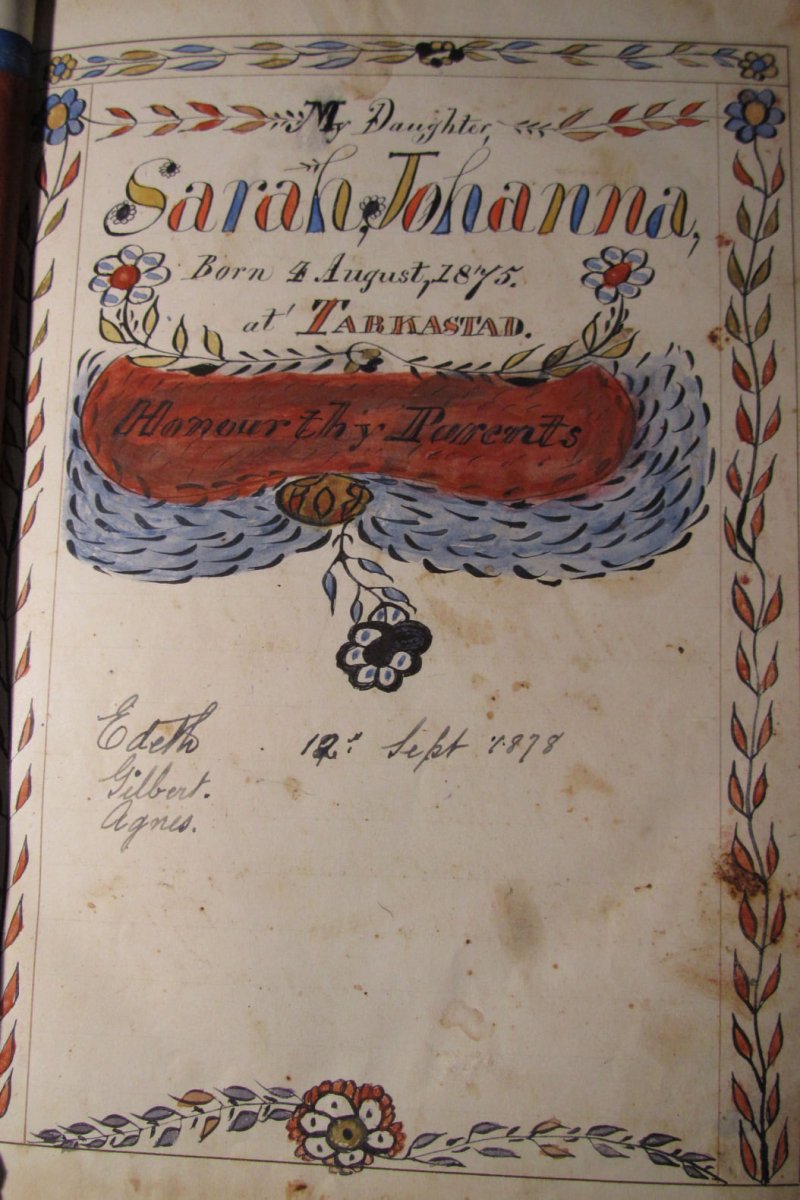 My Daughter,
Sarah, Johanna,
Born 4 August, 1875.
at TARKASTAD.
Honour thy Parents
Edeth 12 Sept 1878
Gilbert.
Agnes.